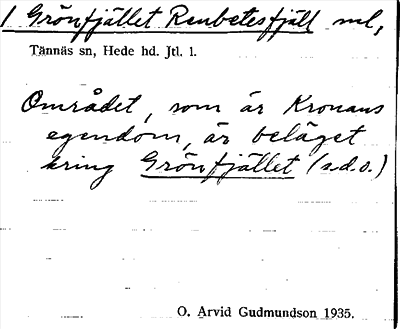 1 Grönfjället Renbetesfjäll nl,
Tännäs sn, Hede hd. Jtl. l.
Området, som är Kronans
egendom, är beläget
kring Grönfjället (s.d.o.)
O. Arvid Gudmundson 1935.